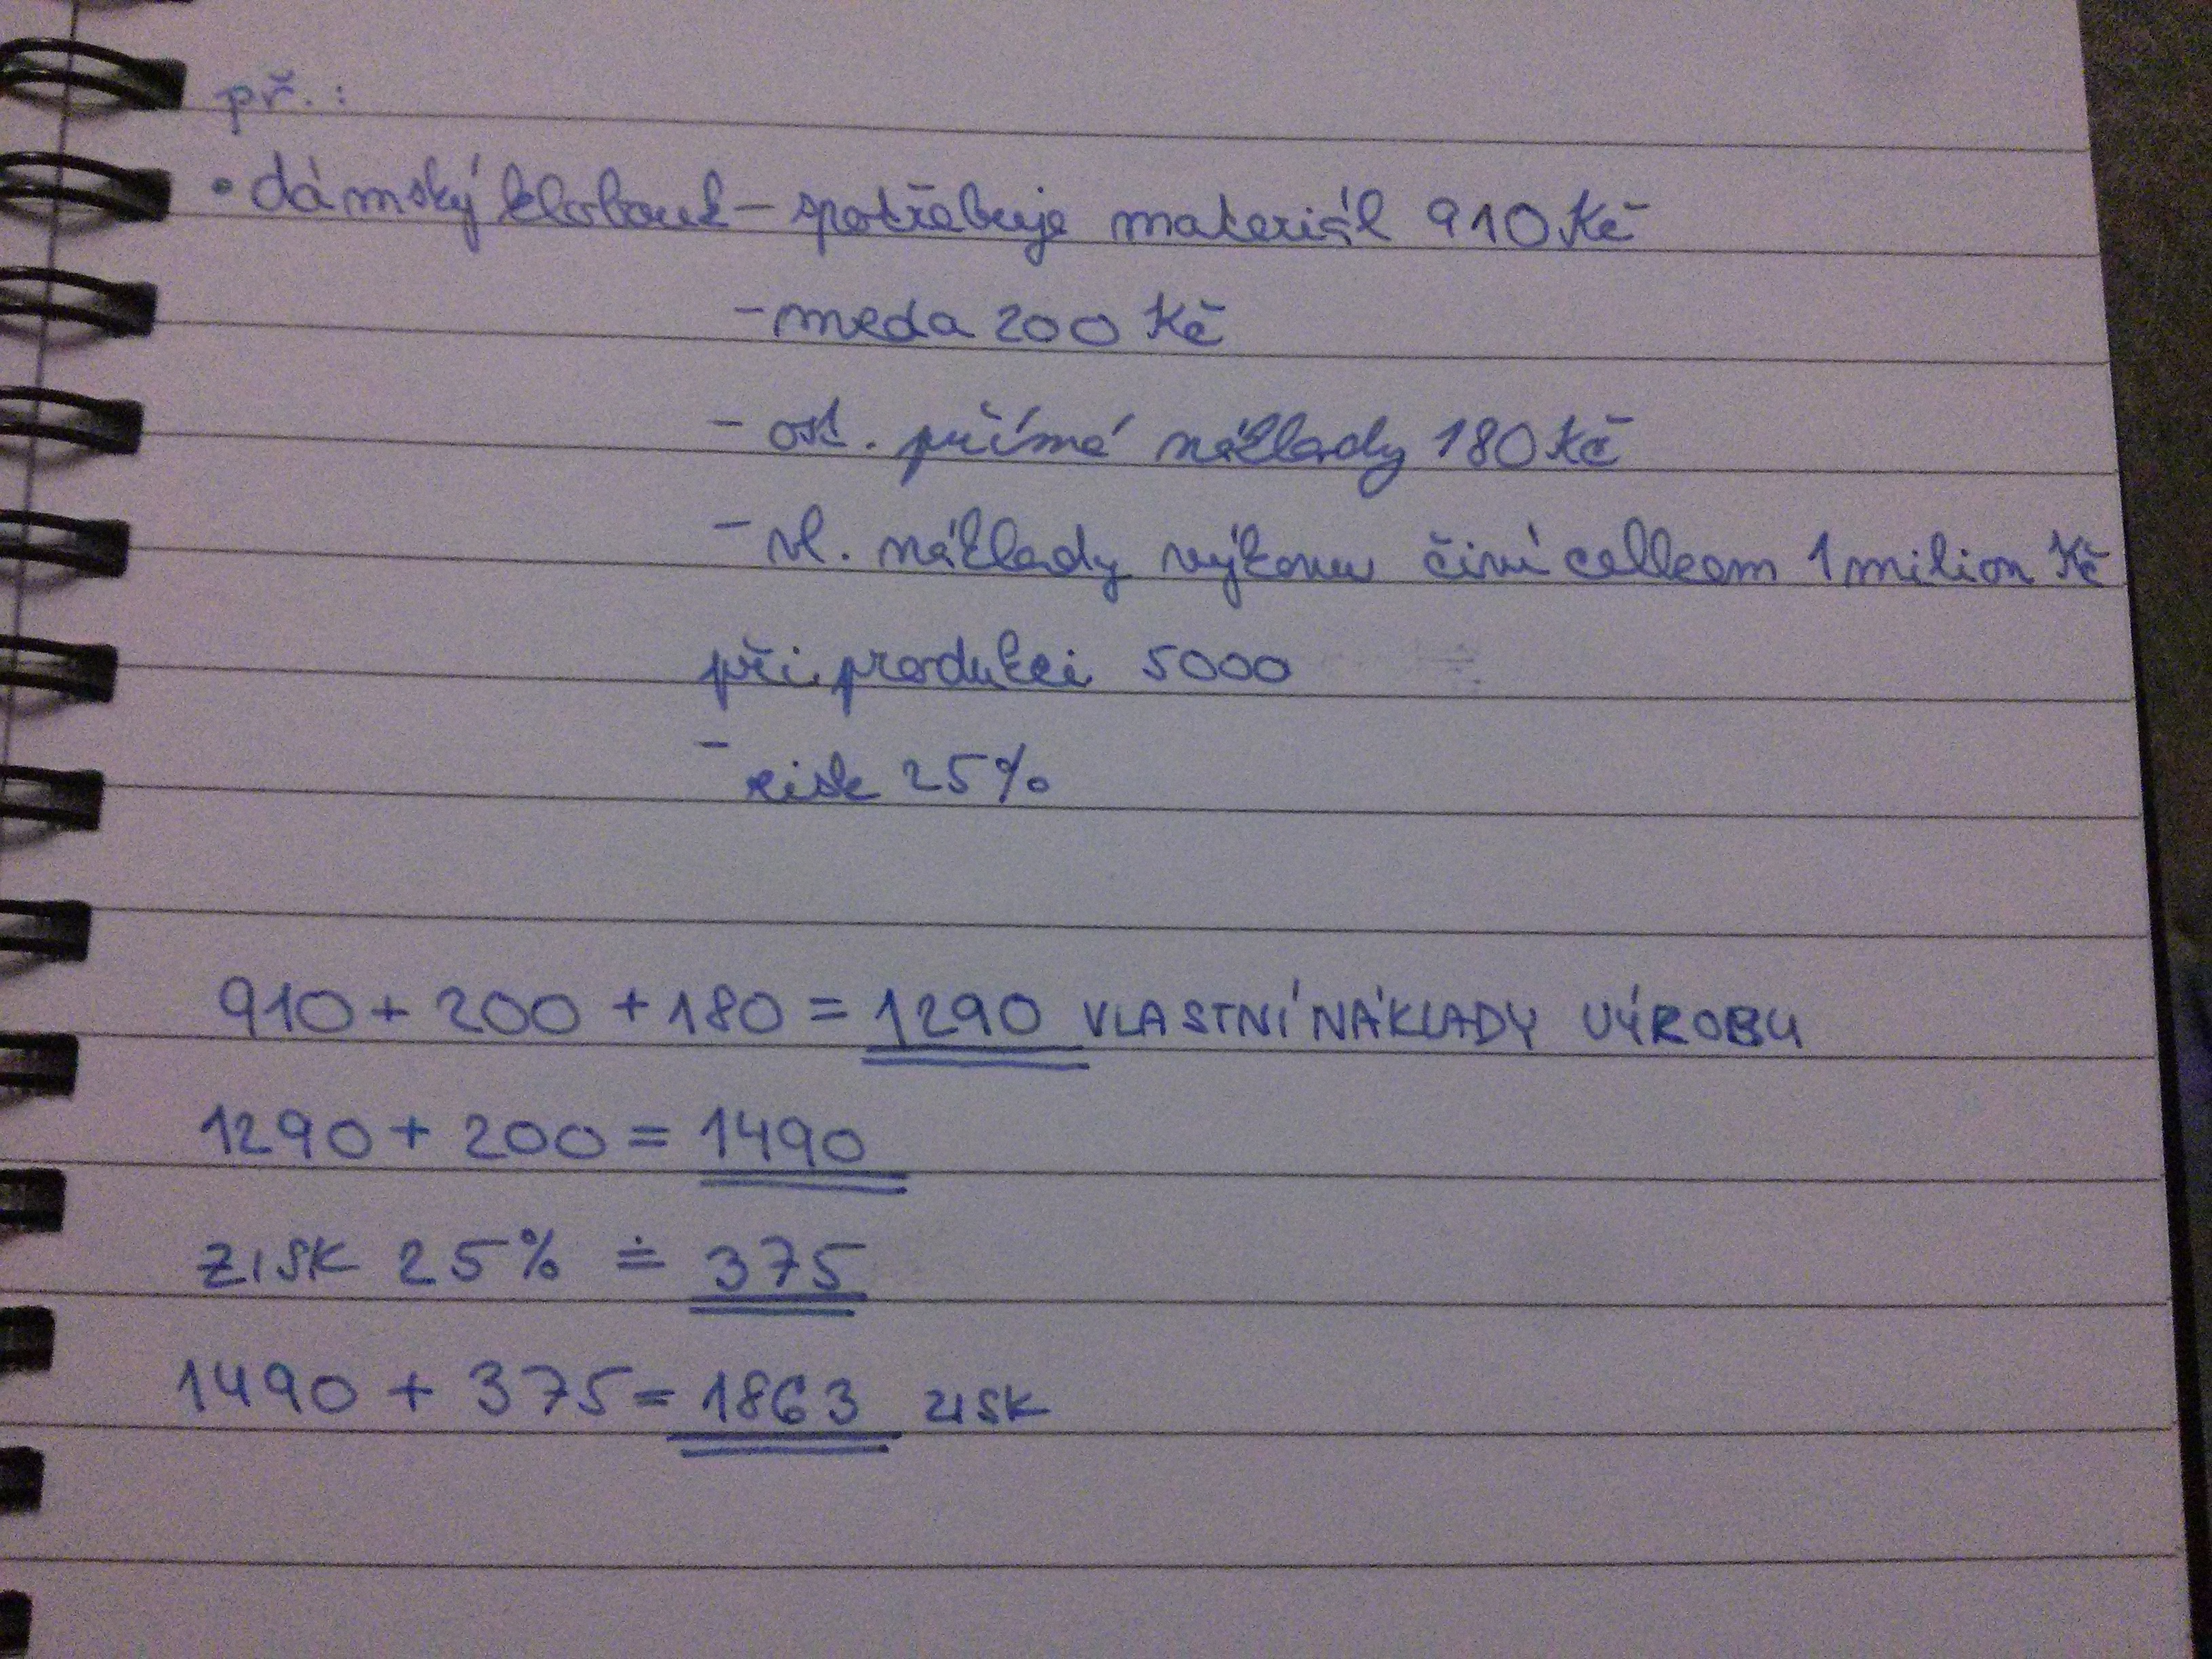 př.:
• dámský klobouk – spotřebuje materiál 910 Kč
– mzda 200 Kč
– ost. přímé náklady 180 Kč
– vl. náklady výkonu činí celkem 1 milion Kč
při produkci 5000
– zisk 25%
910 + 200 + 180 = 1290 VLASTNÍ NÁKLADY VÝROBU
1290 + 200 = 1490
ZISK 25% ≐ 375
1490 + 375 = 1863 ZISK